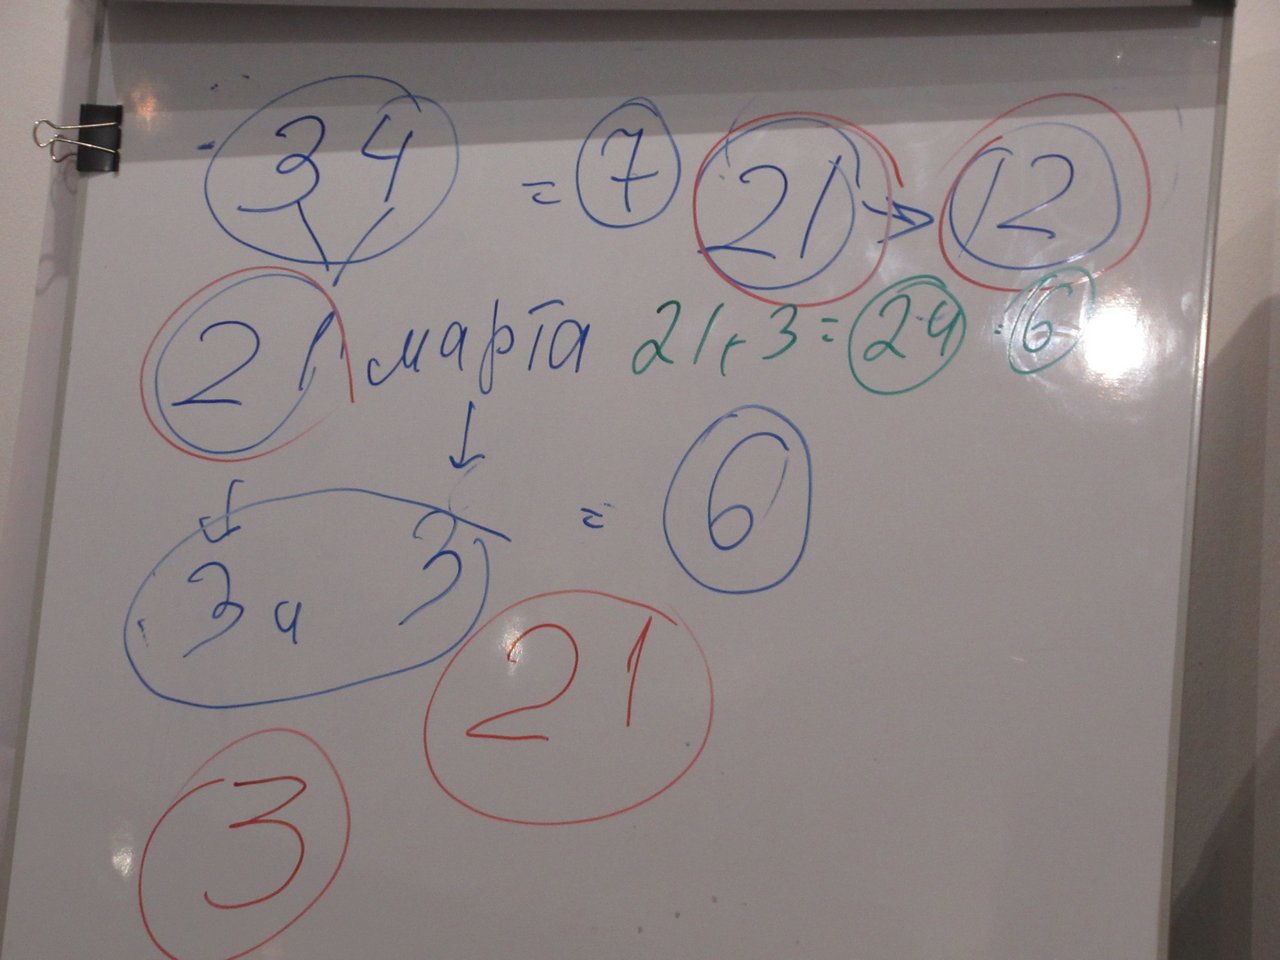 34 = 7 21 → 12
21 марта 21+3=24 · 6
↓ ↓
3 и 3 = 6
21
3